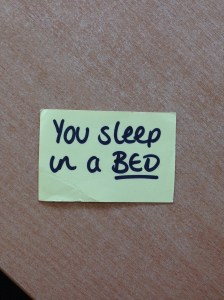 You sleep
in a BED